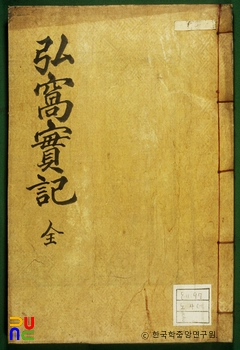 弘窩實記
全
© 한국학중앙연구원